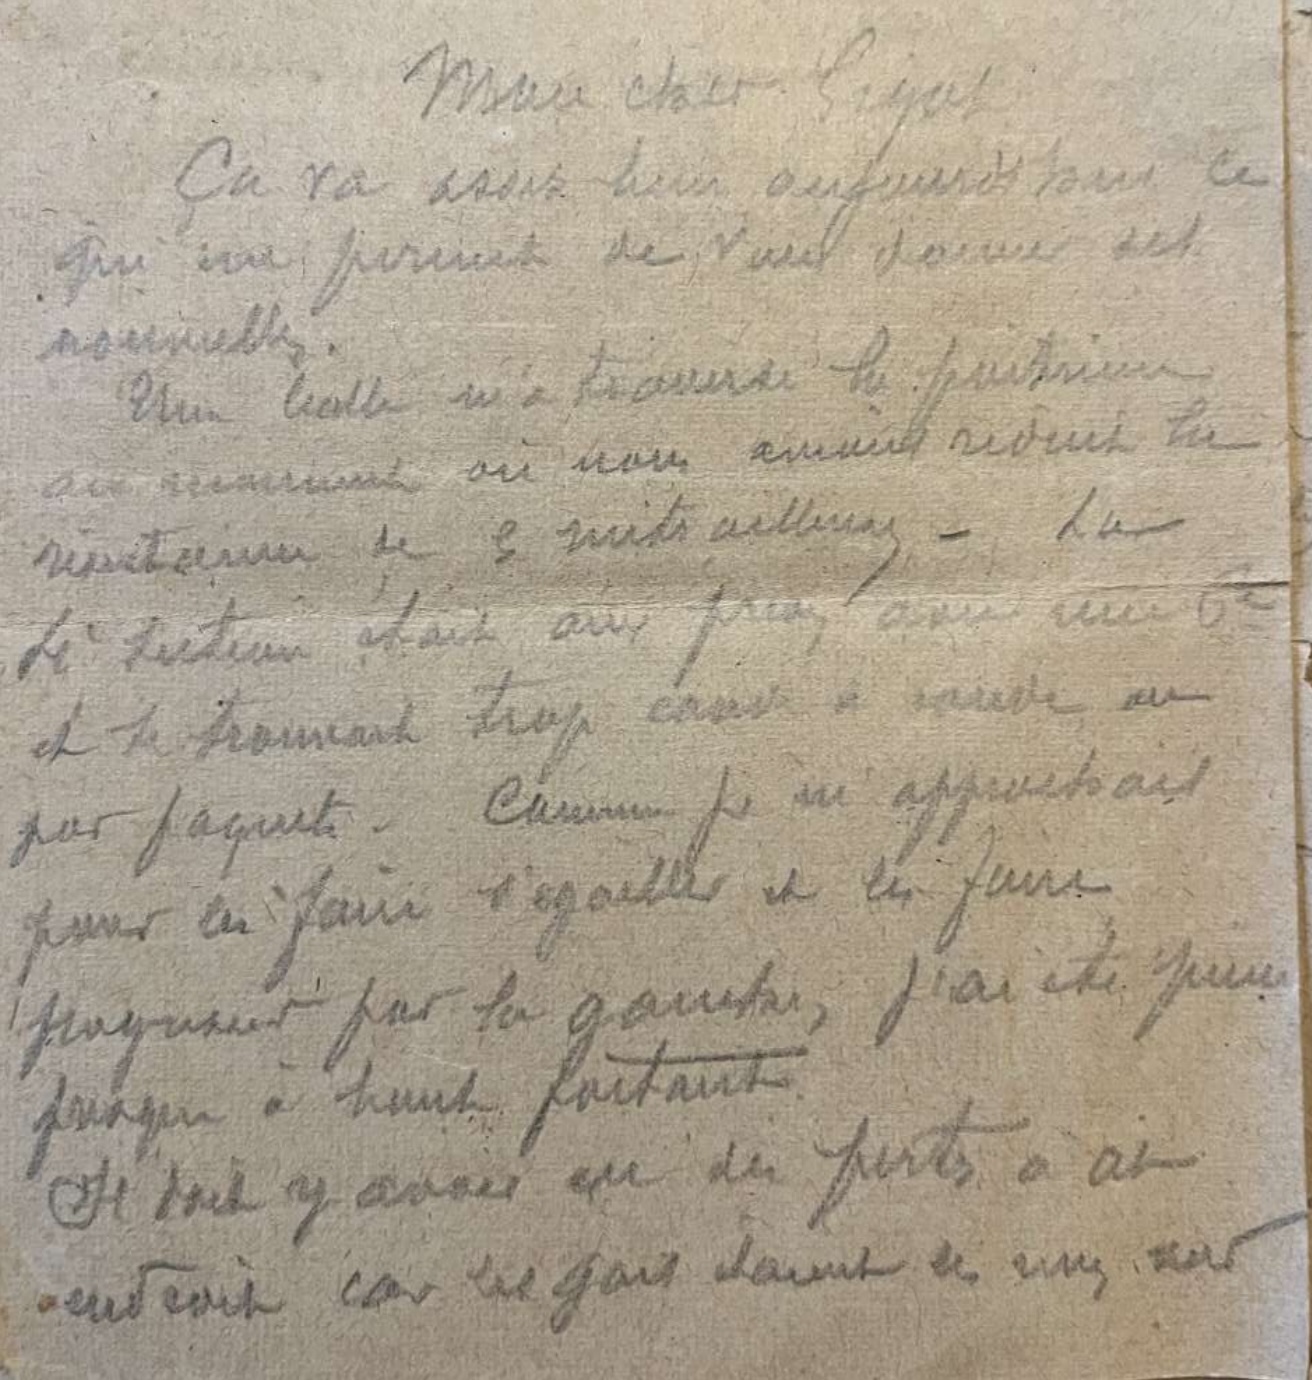 Mon cher Gigot
Ça va assez bien aujourd'hui ce
qui me permet de vous donner des
nouvelles.
Une balle m'a traversé la poitrine
au moment où nous avions réduit la
résistance de 2 mitrailleuses - La
section était aux prises avec une Cie
et se trouvant trop
par paquets. Comme je m'approchais
pour les faire s'égailler et les faire
progresser par la gauche, j'ai été
presque à bout portant.
Il doit y avoir eu des pertes à cet
endroit car les gars étaient les uns sur